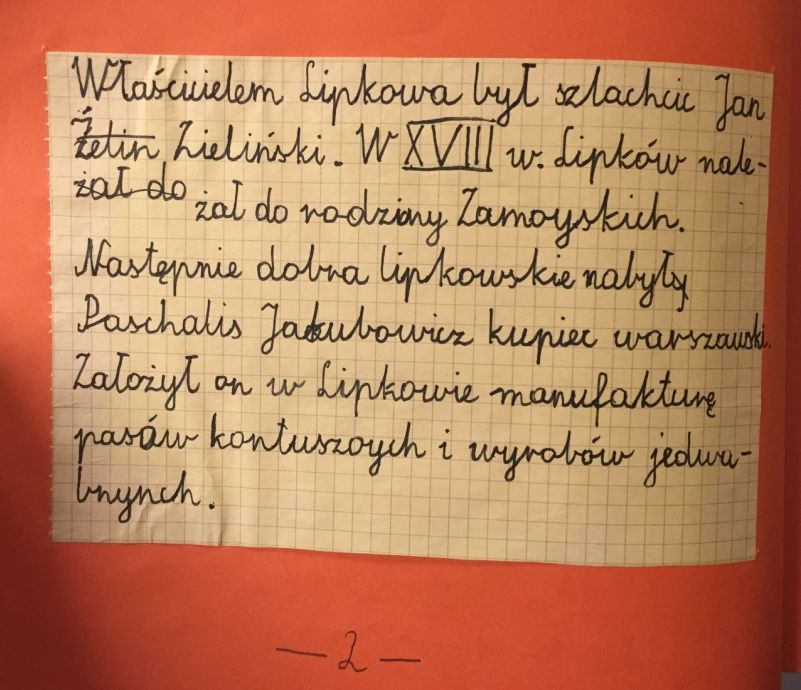 Właścicielem Lipkowa był szlachcic Jan
Żetin Zieliński. W XVIII w. Lipków nale-
żał do żał do rodziny Zamoyskich.
Następnie dobra lipkowskie nabyły
Paschalis Jakubowicz kupiec warszawski.
Założył on w Lipkowie manufakturę
pasów kontuszoych i wyrobów jedwa-
bnynch.
— 2 —